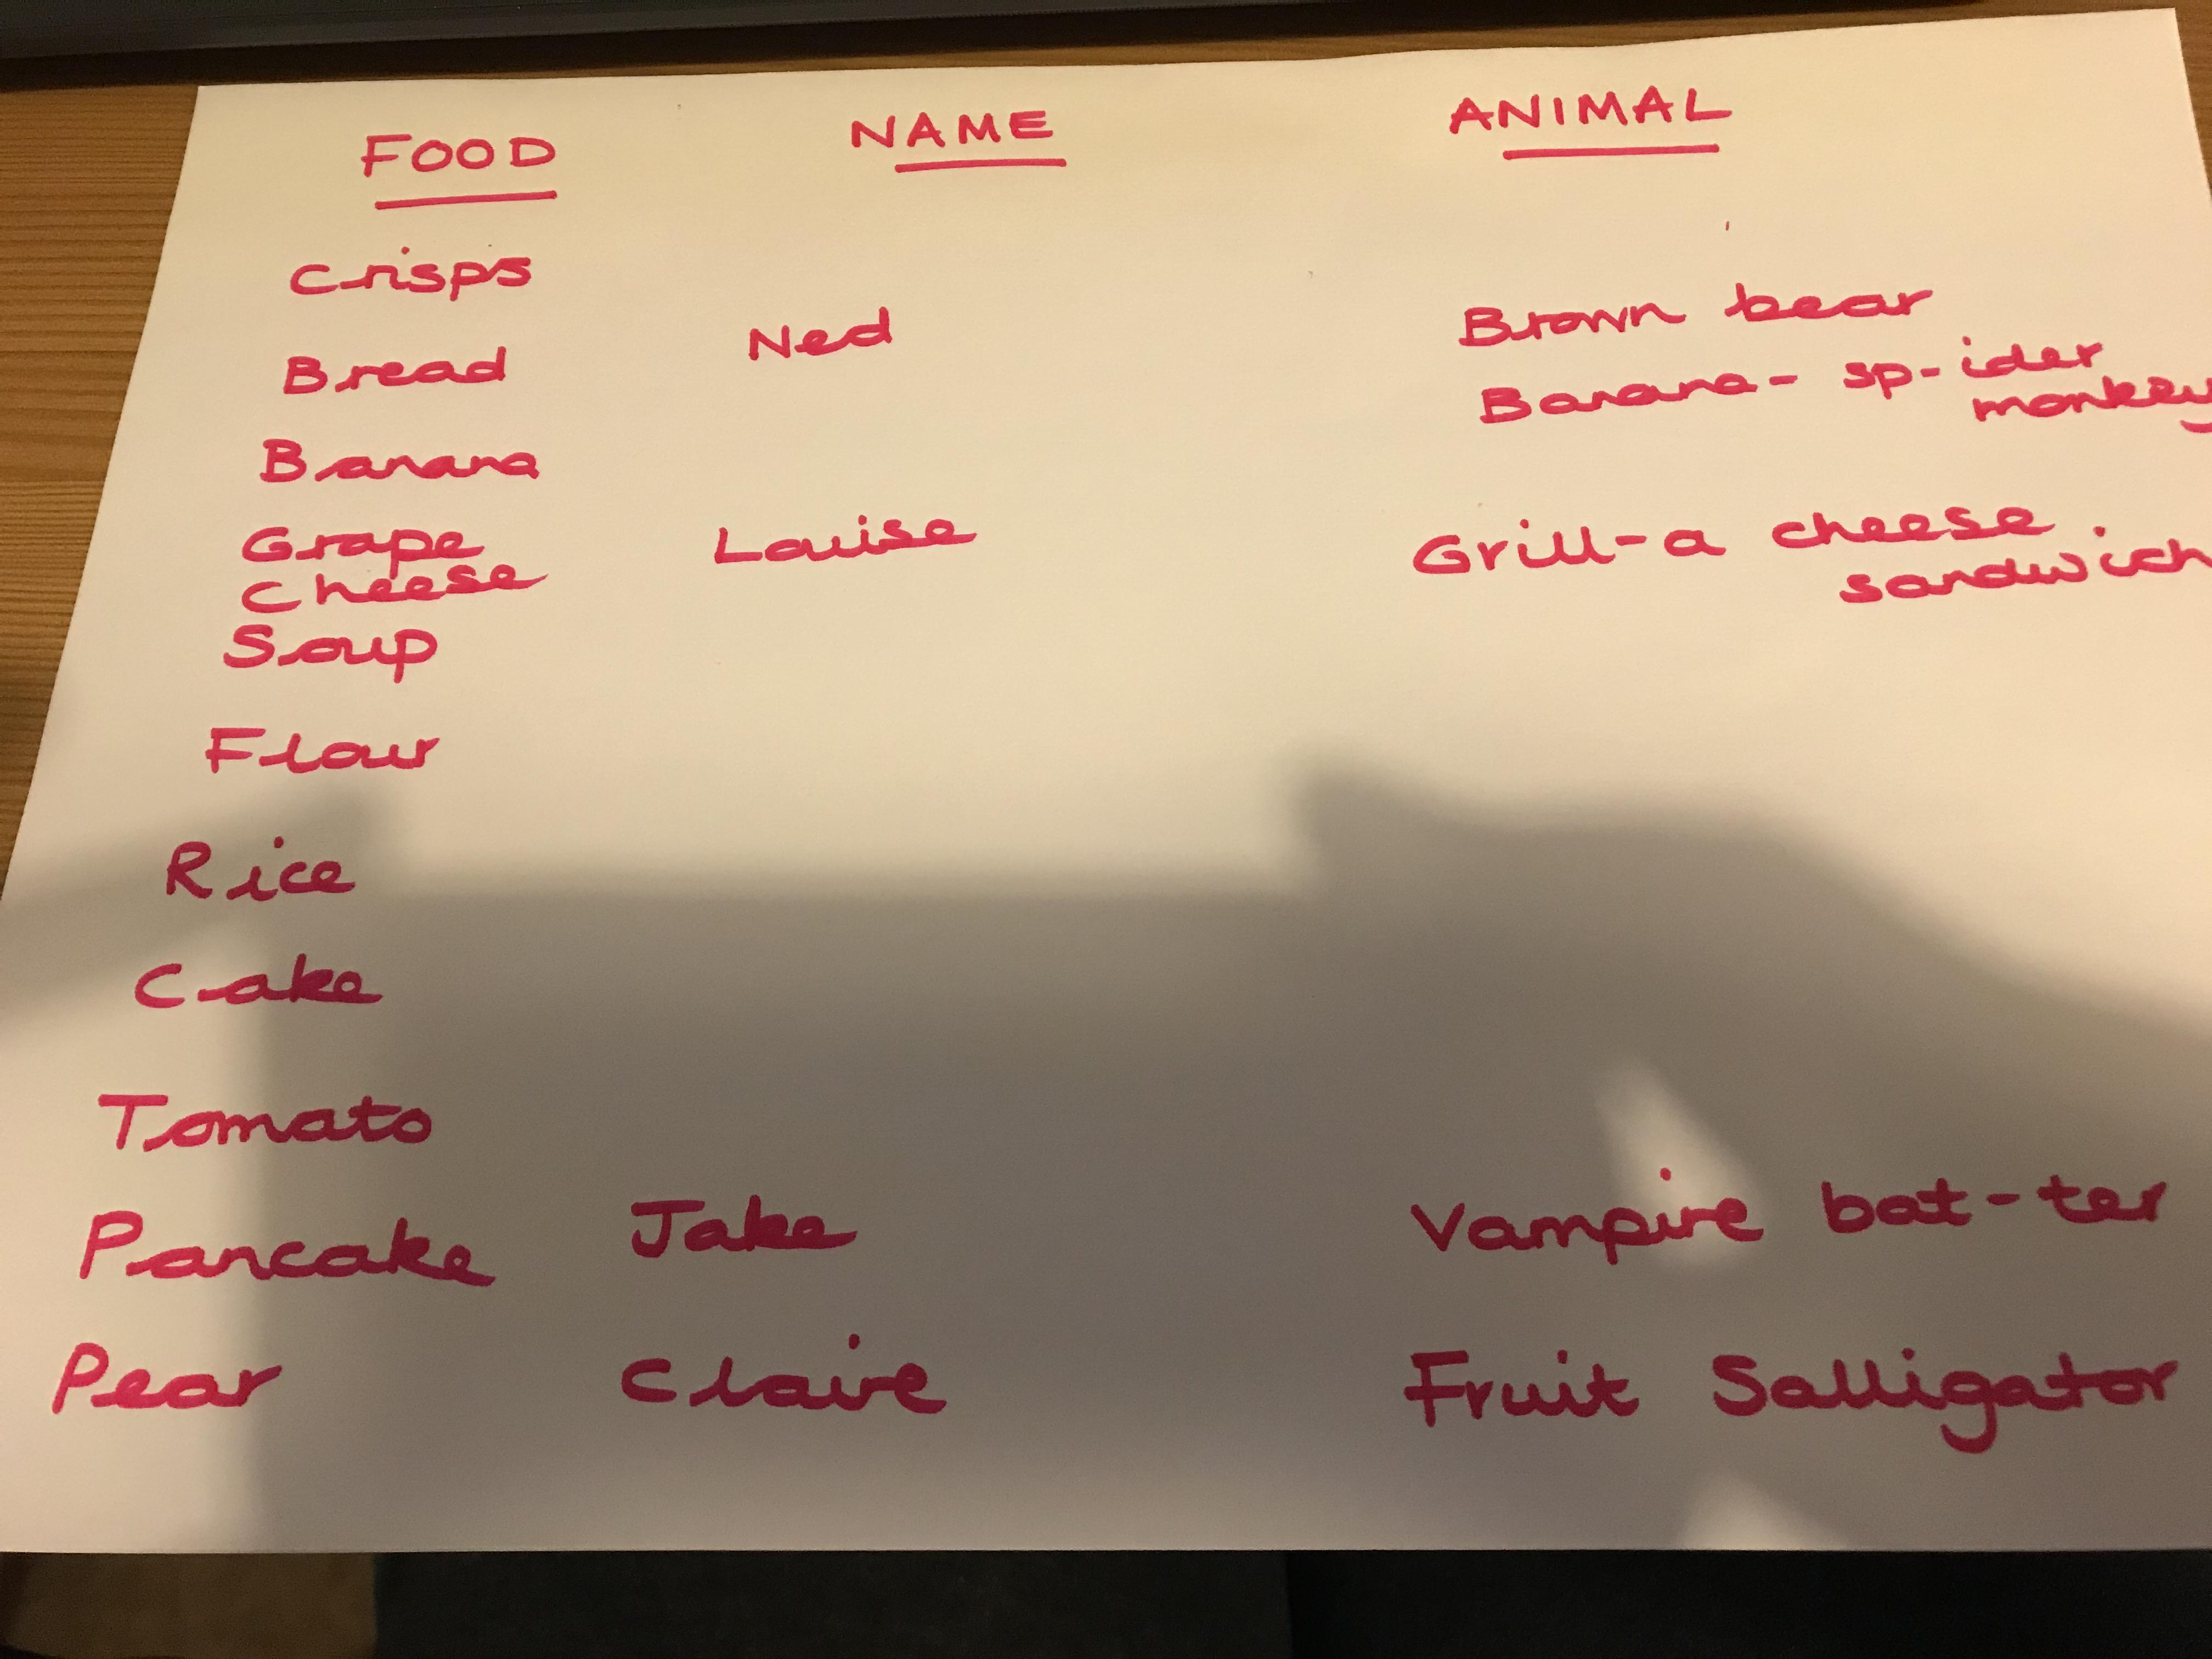 FOOD NAME ANIMAL
Crisps
Bread Ned Brown bear
Banana Banana- sp-ider
monkey
Grape Louise Grill-a cheese
Cheese sandwich
Soup
Flour
Rice
Cake
Tomato
Pancake Jake Vampire bat-ter
Pear Claire Fruit Salligator